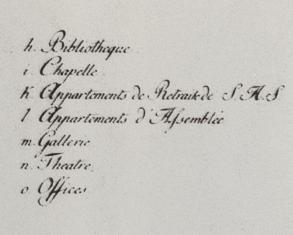 h. Bibliotheque
i. Chapelle
K Appartements de Retraite de S. A. S
l Appartements d'Assemblée
m. Gallerie
n. Theatre
o. Offices